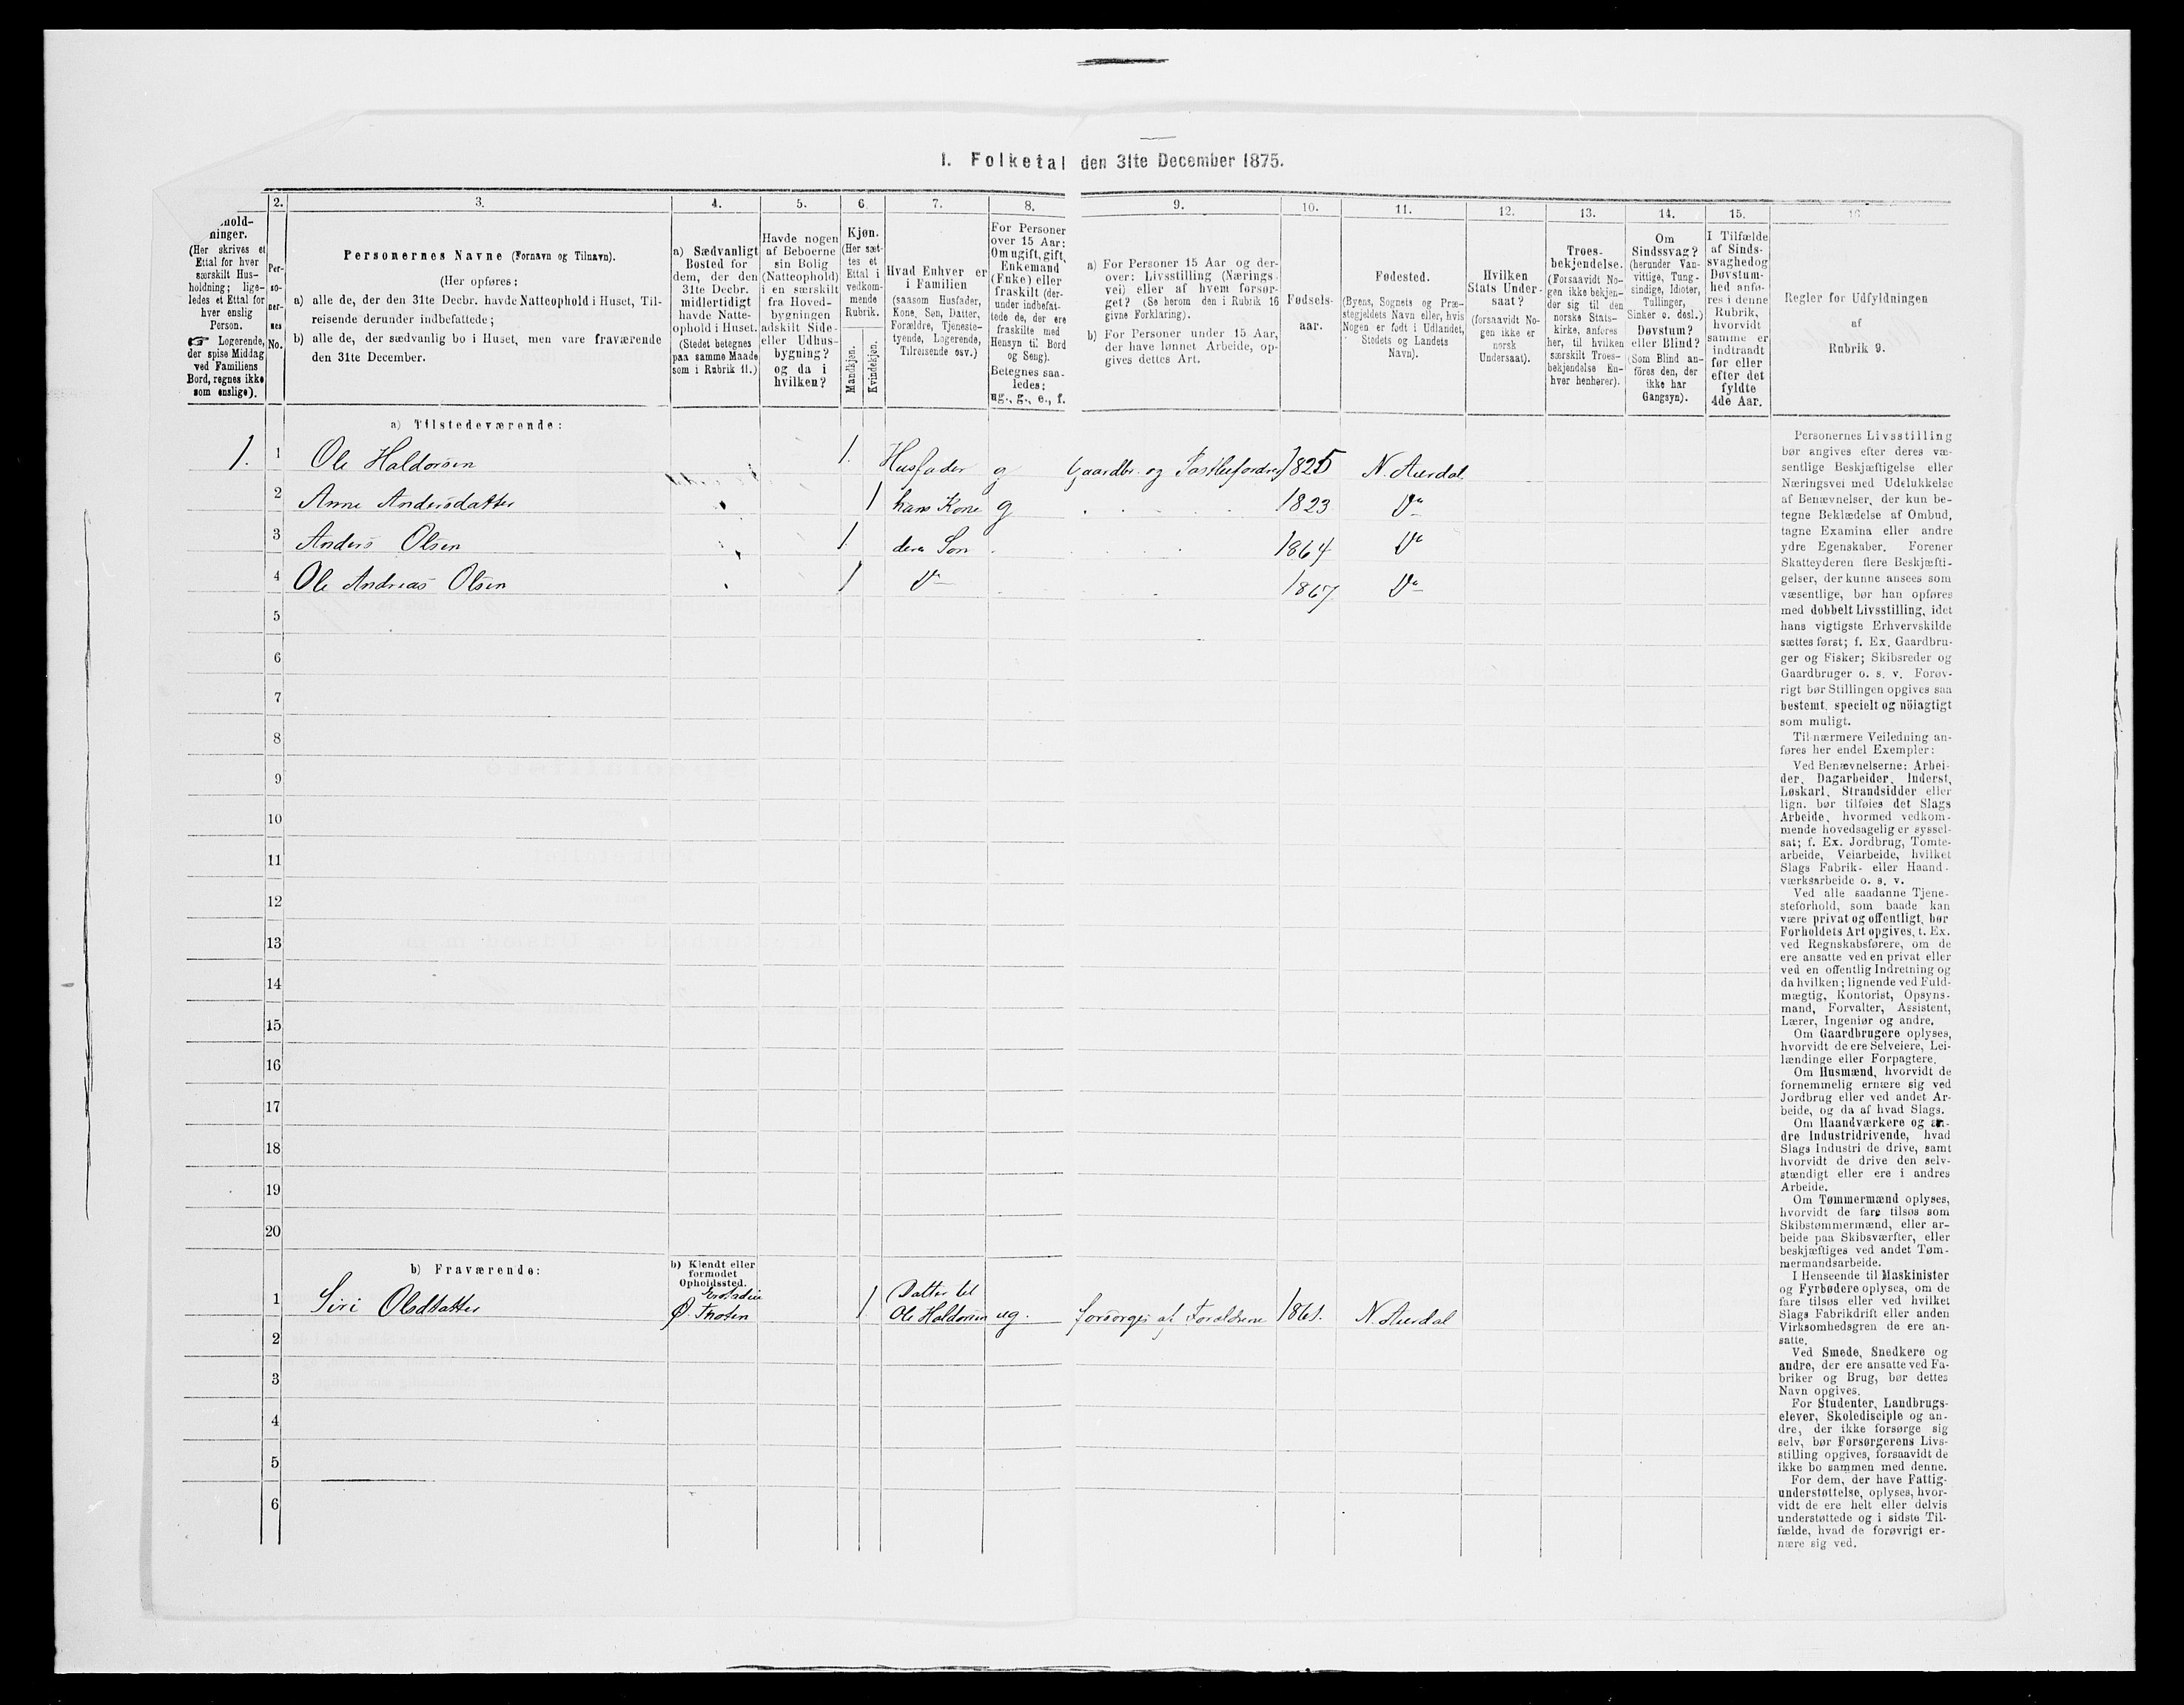 I. Folketal den 31te December 1875.
2. 3. 4. 5. 6. 7. 8. 9. 10. 11. 12. 13. 14. 15. 16
hold-
ninger.
(Her skrives et
Ettal for hver
særskilt Hus-
holdning; lige-
ledes et Ettal for
hver enslig
Person.
☞ Logerende,
der spise Middag
ved Familiens
Bord, regnes ikke
som enslige).
Per-
so-
ner-
nes
No.
Personernes Navne (Fornavn og Tilnavn).
(Her opføres:
a) alle de, der den 31te Decbr. havde Natteophold i Huset, Til-
reisende derunder indbefattede;
b) alle de, der sædvanlig bo i Huset, men vare fraværende
den 31te December.
a) Sædvanligt
Bosted for
dem, der den
31te Decbr.
midlertidigt
havde Natte-
ophold i Huset.
(Stedet betegnes
paa samme Maade
som i Rubrik 11.)
Havde nogen
af Beboerne
sin Bolig
(Natteophold)
i en særskilt
fra Hoved-
bygningen
adskilt Side-
eller Udhus-
bygning?
og da i
hvilken?
Kjøn.
(Her sæt-
tes et
Ettal i
vedkom-
mende
Rubrik.
Mandkjøn.
Kvindekjøn.
Hvad Enhver er
i Familien
(saasom Husfader,
Kone, Søn, Datter,
Forældre, Tjeneste-
tyende, Logerende,
Tilreisende osv.)
For Personer
over 15 Aar:
Om ugift, gift,
Enkemand
(Enke) eller
fraskilt (der-
under indbefat-
tede de, der ere
fraskilte med
Hensyn til Bord
og Seng).
Betegnes saa-
ledes:
ug., g., e., f.
a) For Personer 15 Aar og der-
over: Livsstilling (Nærings-
vei) eller af hvem forsør-
get? (Se herom den i Rubrik 16
givne Forklaring).
b) For Personer under 15 Aar,
der have lønnet Arbeide, op-
gives dettes Art.
Fødsels-
aar.
Fødested.
(Byens, Sognets og Præ-
stegjeldets Navn eller, hvis
Nogen er født i Udlandet,
Stedets og Landets
Navn).
Hvilken
Stats Under-
saat?
(forsaavidt No-
gen ikke er
norsk
Undersaat).
Troes-
bekjendelse.
(Forsaavidt No-
gen ikke bekjen-
der sig til den
norske Stats-
kirke, anføres
her, til hvilken
særskilt Troes-
bekjendelse En-
hver henhører).
Om
Sindssvag?
(herunder Van-
vittige, Tung-
sindige, Idioter,
Tullinger,
Sinker o. desl.)
Døvstum?
eller Blind?
(Som Blind an-
föres den, der
ikke har
Gangsyn).
I Tilfælde
af Sinds-
svaghed og
Døvstum-
hed anfø-
res i denne
Rubrik,
hvorvidt
samme er
indtraadt
før eller
efter det
fyldte
4de Aar.
Regler for Udfyldningen
af
Rubrik 9.
a) Tilstedeværende:
1. 1 Ole Haldorsen 1. Husfader g Gaardbr. og Postbefordrer 1825 N. Aurdal
2 Anne Andersdatter 1 hans Kone g 1823 Do
3 Anders Olsen 1 dere Søn 1864 Do
4 Ole Andreas Olsen 1 Do 1867 Do
5
6
7
8
9
10
11
12
13
14
15
16
17
18
19
20
b) Fraværende:
b) Kjendt eller
formodet
Opholdssted.
1 Siri Olsdatter Ø. Thoten 1 Datter til
Ole Haldorsen ug. forsørges af Forældrene 1861. N. Aurdal
2
3
4
5
6
Personernes Livsstilling
bør angives efter deres væ-
sentlige Beskjæftigelse eller
Næringsvei med Udelukkelse
af Benævnelser, der kun be-
tegne Beklædelse af Ombud,
tagne Examina eller andre
ydre Egenskaber. Forener
Skatteyderen flere Beskjæfti-
gelser, der kunne ansees som
væsentlige, bør han opføres
med dobbelt Livsstilling, idet
hans vigtigste Erhvervskilde
sættes først; f. Ex. Gaardbru-
ger og Fisker; Skibsreder og
Gaardbruger o. s. v. Forøv-
rigt bør Stillingen opgives saa
bestemt, specielt og nöiagtigt
som muligt.
Til nærmere Veiledning an-
føres her endel Exempler:
Ved Benævnelserne: Arbei-
der, Dagarbeider, Inderst,
Løskarl, Strandsidder eller
lign. bør tilføies det Slags
Arbeide, hvormed vedkom-
mende hovedsagelig er syssel-
sat; f. Ex. Jordbrug, Tomte-
arbeide, Veiarbeide, hvilket
Slags Fabrik- eller Haand-
værksarbeide o. s. v.
Ved alle saadanne Tjene-
steforhold, som baade kan
være privat og offentligt, bør
Forholdets Art opgives, t. Ex.
ved Regnskabsførere, om de
ere ansatte ved en privat eller
ved en offentlig Indretning og
da hvilken; lignende ved Fuld-
mægtig, Kontorist, Opsyns-
mand, Forvalter, Assistent,
Lærer, Ingeniør og andre.
Om Gaardbrugere oplyses,
hvorvidt de ere Selveiere, Lei-
lændinge eller Forpagtere.
Om Husmænd, hvorvidt de
fornemmelig ernære sig ved
Jordbrug eller ved andet Ar-
beide, og da af hvad Slags.
Om Haandværkere og an-
dre Industridrivende, hvad
Slags Industri de drive, samt
hvorvidt de drive den selv-
stændigt eller ere i andres
Arbeide.
Om Tømmermænd oplyses,
hvorvidt de fare tilsøs som
Skibstømmermænd, eller ar-
beide paa Skibsværfter, eller
beskjæftiges ved andet Tøm-
mermandsarbeide.
I Henseende til Maskinister
og Fyrbødere oplyses, om de
fare tilsøs eller ved hvilket
Slags Fabrikdrift eller anden
Virksomhedsgren de ere an-
satte.
Ved Smede, Snedkere og
andre, der ere ansatte ved Fa-
briker og Brug, bør dettes
Navn opgives.
For Studenter, Landbrugs-
elever, Skoledisciple og an-
dre, der ikke forsørge sig
selv, bør Forsørgerens Livs-
stilling opgives, forsaavidt de
ikke bo sammen med denne.
For dem, der have Fattig-
understøttelse, oplyses, hvor-
vidt de ere helt eller delvis
understøttede og i sidste Til-
fælde, hvad de forøvrigt er-
nære sig ved.